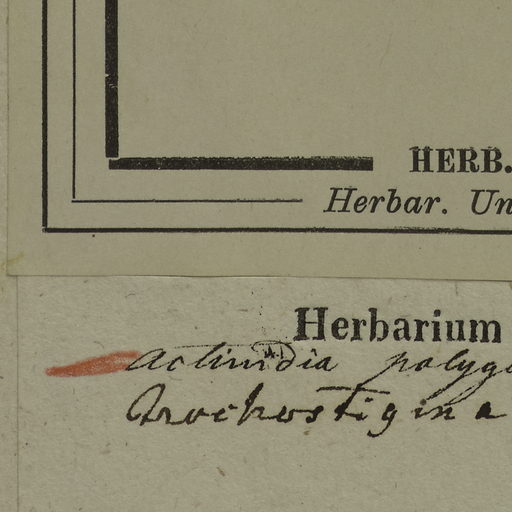 HERB.
Herbar. Un
Herbarium
Actinidia polyg
Trochostigma